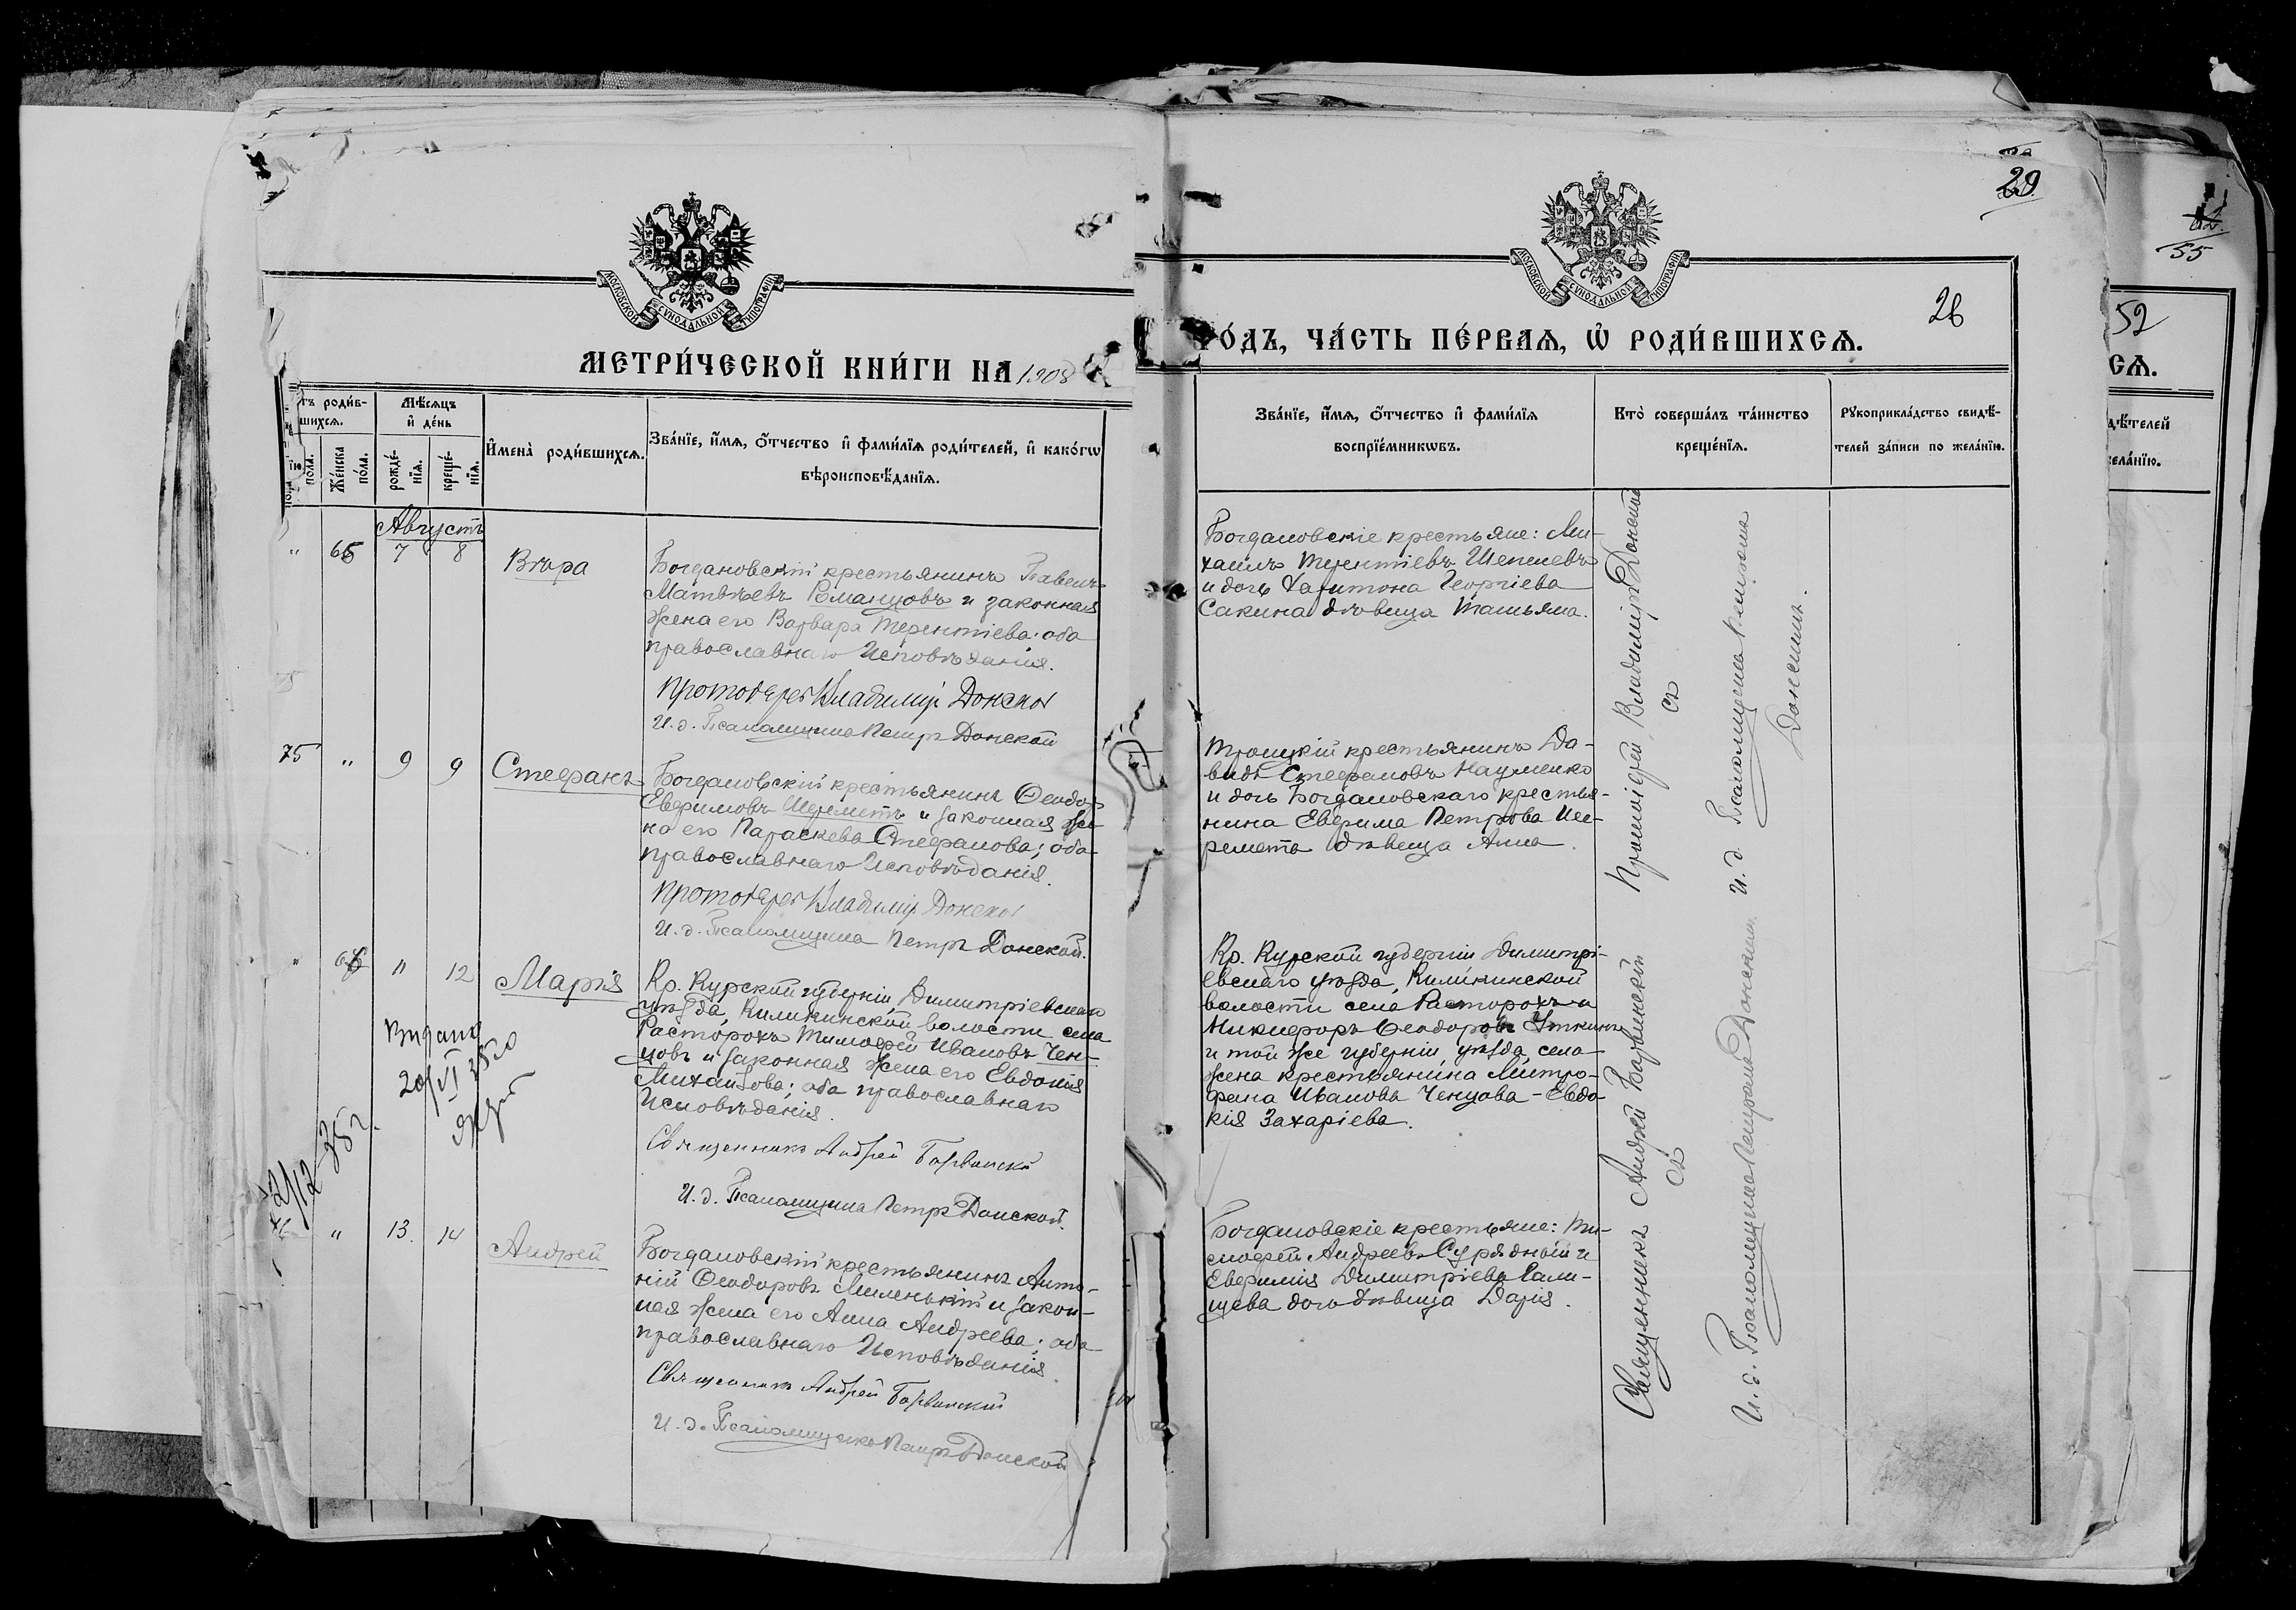 29
26
52
55
МОСКОВСКОЙ СѴНОДАЛЬНОЙ ТИПОГРАФІИ
МОСКОВСКОЙ СѴНОДАЛЬНОЙ ТИПОГРАФІИ
МЕТРИ́ЧЕСКОЙ КНИ́ГИ НА 1908
ГО́ДЪ, ЧА́СТЬ ПЕ́РВАѦ, Ѡ҆ РОДИ́ВШИХСѦ.
СѦ.
роди́в-
шихсѧ.
Же́нска по́ла.
Мѣ́сѧцъ и҆ де́нь
рожде́-
нїѧ.
креще́-
нїѧ.
И҆мена̀ роди́вшихсѧ.
Зва́нїе, и҆́мѧ, ѻ҆́тчество и҆ фами́лїѧ роди́телей, и҆ како́гѡ
вѣроисповѣ́данїѧ.
Зва́нїе, и҆́мѧ, ѻ҆́тчество и҆ фами́лїѧ
воспрїе́мникѡвъ.
Кто̀ соверша́лъ та́инство
креще́нїѧ.
Рꙋкоприкла́дство свидѣ́-
телей за́писи по жела́нїю.
Августъ
" 65 7 8 Вѣра
Богдановскій крестьянинъ Павелъ
Матвѣевъ Романцовъ и законная
жена его Варвара Терентіева; оба
православнаго Исповѣданія.
Протоіерей Владиміръ Донской
И. д. Псаломщика Петръ Донской
Богдановскіе крестьяне: Ми-
хаилъ Терентіевъ Шепилевъ
и дочь Харитона Георгіева
Сакина дѣвица Татьяна.
Протоіерей Владиміръ Донской
И. д. Псаломщика
75 " 9 9 Стефанъ
Богдановскій крестьянинъ Ѳеодоръ
Евфимовъ Шереметъ и законная же-
на его Параскева Стефанова; оба
православнаго Исповѣданія.
Протоіерей Владиміръ Донской
И. д. Псаломщика Петръ Донской.
Троицкій крестьянинъ Да-
видъ Стефановъ Науменко
и дочь Богдановскаго крестья-
нина Евфима Петрова Ше-
ремета дѣвица Анна.
" 66 11 12 Марія
Кр. Курской губерніи, Димитріевскаго
уѣзда, Киликинской волости села
Расторохъ Тимоѳей Ивановъ Чен-
цовъ и законная жена его Евдокія
Михайлова; оба православнаго
Исповѣданія.
Священникъ Андрей Барвинскій
И. д. Псаломщика Петръ Донской.
Выдана
Кр. Курской губерніи Димитрі-
евскаго уѣзда, Киликинской
волости села Расторохъ
Никифоръ Ѳеодоровъ Уткинъ
и той же губерніи, уѣзда, села
жена крестьянина Митро-
фана Иванова Ченцова - Евдо-
кія Захаріева.
Священникъ Андрей Барвинскій
И. д. Псаломщика Петръ Донской
2/12 35 г.
" 13. 14 Андрей
Богдановскій крестьянинъ Анто-
ній Ѳеодоровъ Миленькій и закон-
ная жена его Анна Андреева; оба
православнаго Исповѣданія.
Священникъ Андрей Барвинскій
И. д. Псаломщика Петръ Донской
Богдановскіе крестьяне: Ти-
моѳей Андреевъ Сурядный и
Евфимія Димитріева
дочь дѣвица Дарія.